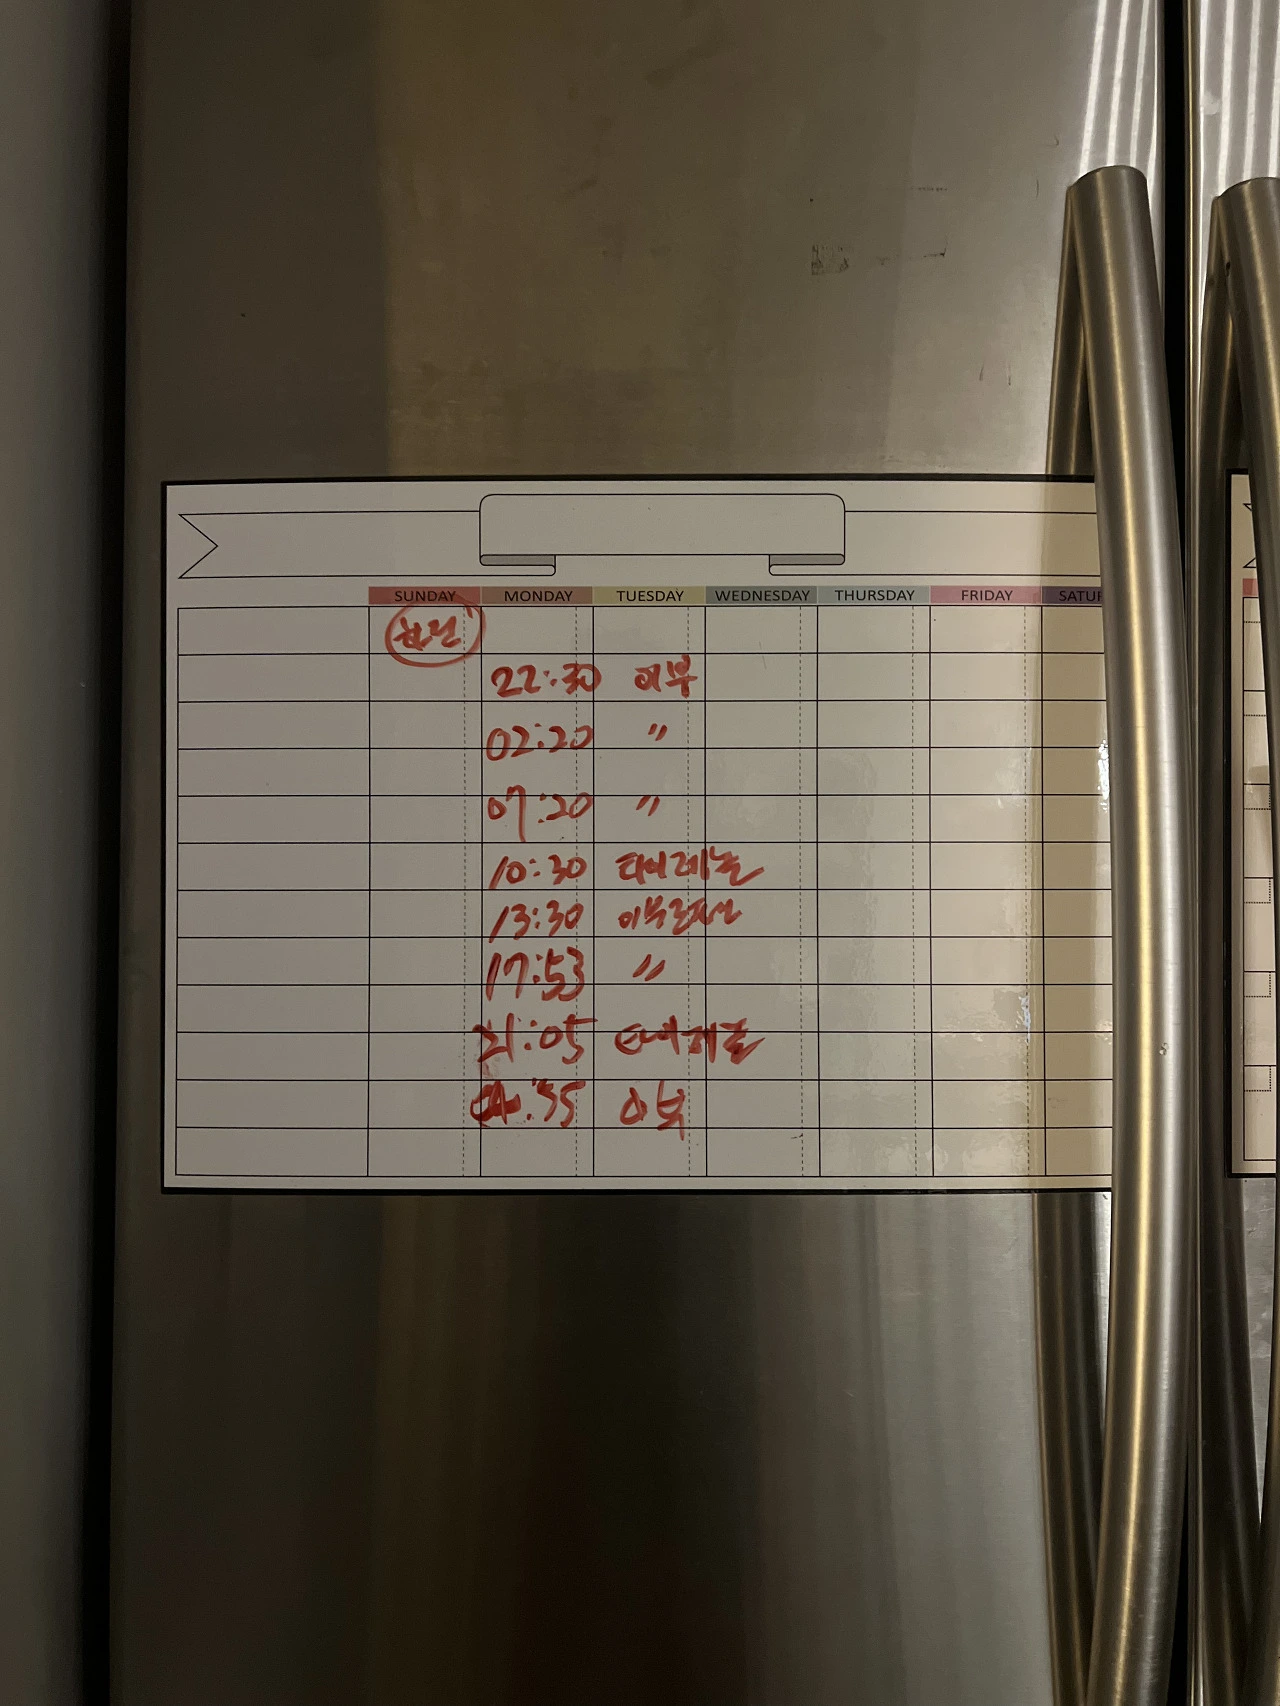 SUNDAY MONDAY TUESDAY WEDNESDAY THURSDAY FRIDAY SATUR
22:30 이부
02:20 〃
07:20 〃
10:30 타이레놀
13:30 이부프로펜
17:53 〃
21:05 타이레놀
이부